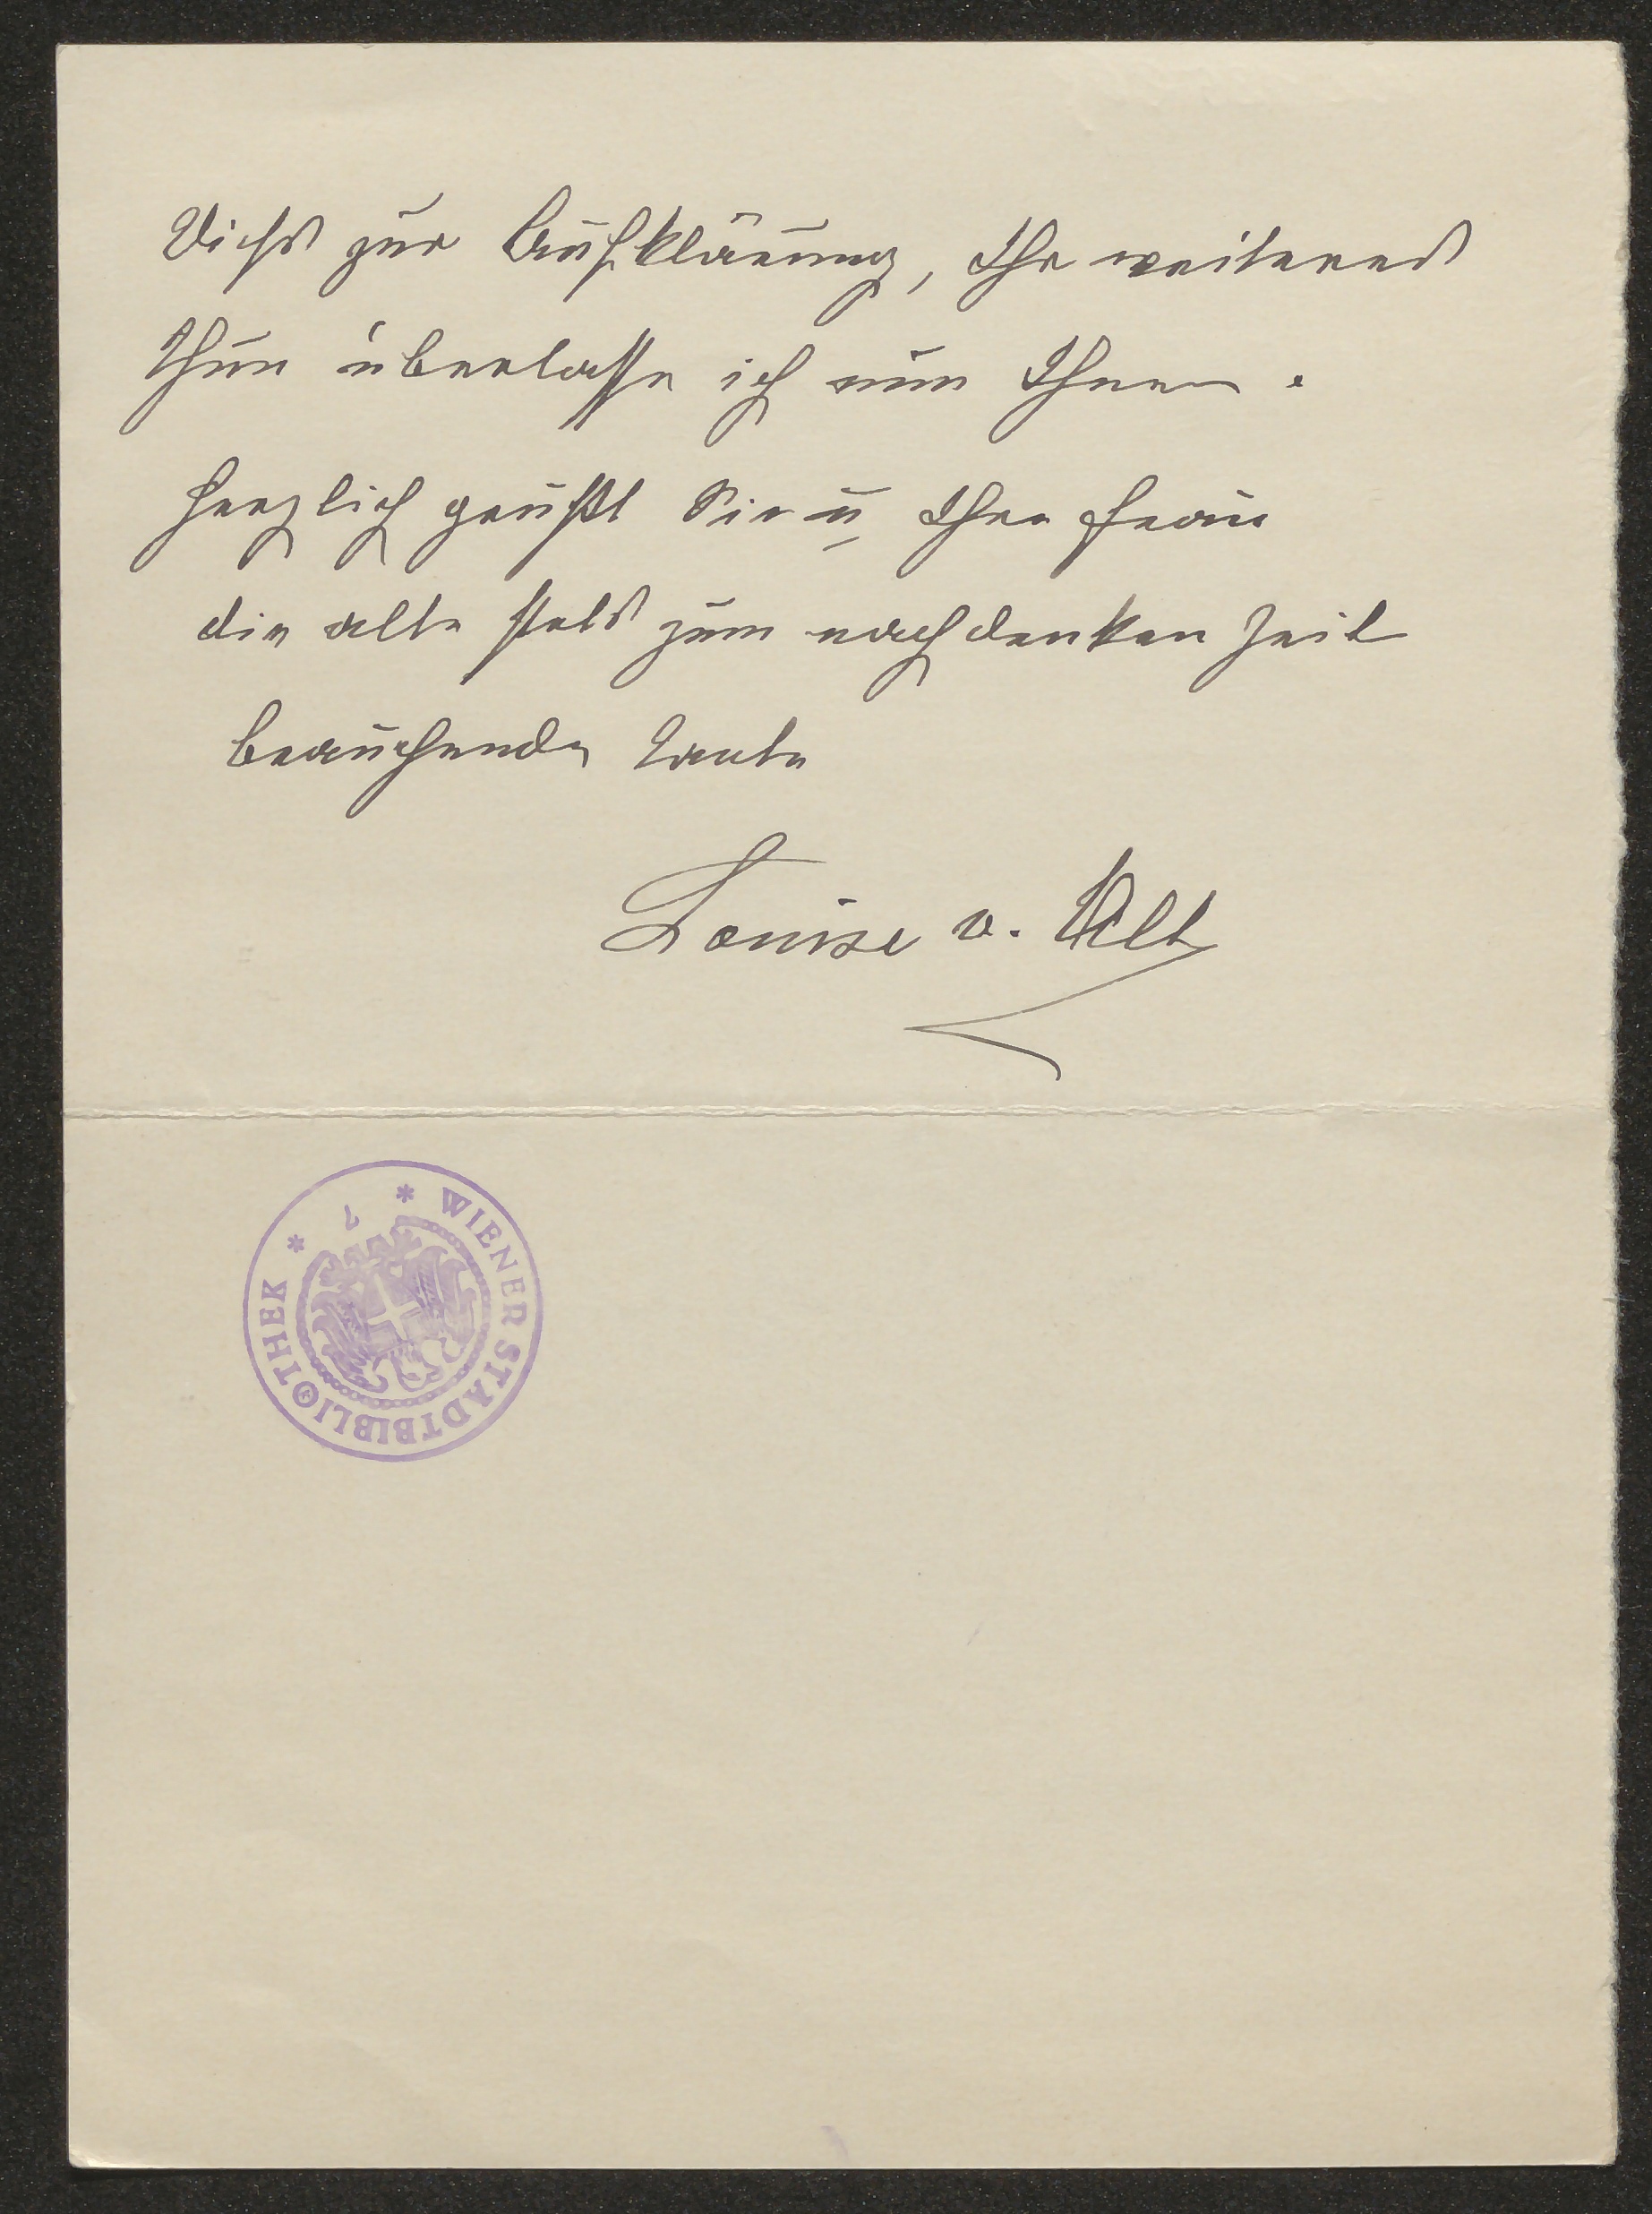 Dieß zur Aufklärung, Ihr weiteres
Thun überlasse ich nun Ihnen.
Herzlich grüßt Sie u. Ihre Frau
die alte stets zum nachdenken Zeit
brauchende Tante
Louise v. Alt
* WIENER STADTBIBLIOTHEK *